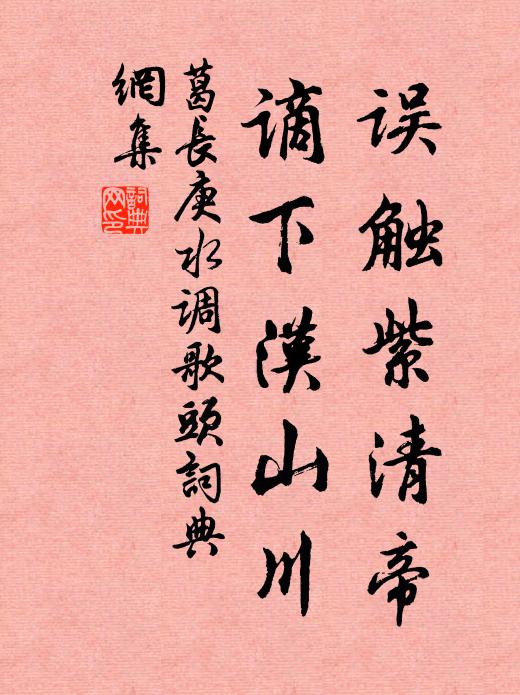 误触紫清帝
谪下汉山川
葛長庚水调歌頭詞典
網集
詞典
网印